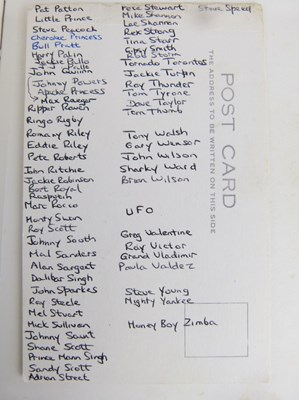 Pat Patton
Little Prince
Steve Peacock
Cherokee Princess
Bull Pratt
Harry Palin
Jackie Pallo
J J Pallo
John Quinn
Johnny Powers
Apache Princess
Max Raeger
Ripper Raven
Ringo Rigby
Romany Riley
Eddie Riley
Pete Roberts
John Ritchie
Jackie Robinson
Bert Royal
Rasputin
Marc Rocco
Monty Swan
Roy Scott
Johnny South
Mal Sanders
Alan Sargent
Dalibar Singh
John Sparkes
Roy Steele
Mel Stuart
Mick Sullivan
Johnny Saint
Shane Scott
Prince Mann Singh
Sandy Scott
Adrian Street
Pete Stewart
Mike Shannon
Lee Shannon
Rex Strong
Tina Starr
Gary Smith
Tornado Torontos
Jackie Turpin
Roy Thunder
Tom Tyrone
Dave Taylor
Tom Thumb
Tony Walsh
Gary Wensor
John Wilson
Sharky Ward
Brian Wilson
UFO
Greg Valentine
Roy Victor
Grand Vladimir
Paula Valdez
Steve Young
Mighty Yankee
Honey Boy Zimba
Steve Speed
POST CARD
THE ADDRESS TO BE WRITTEN ON THIS SIDE